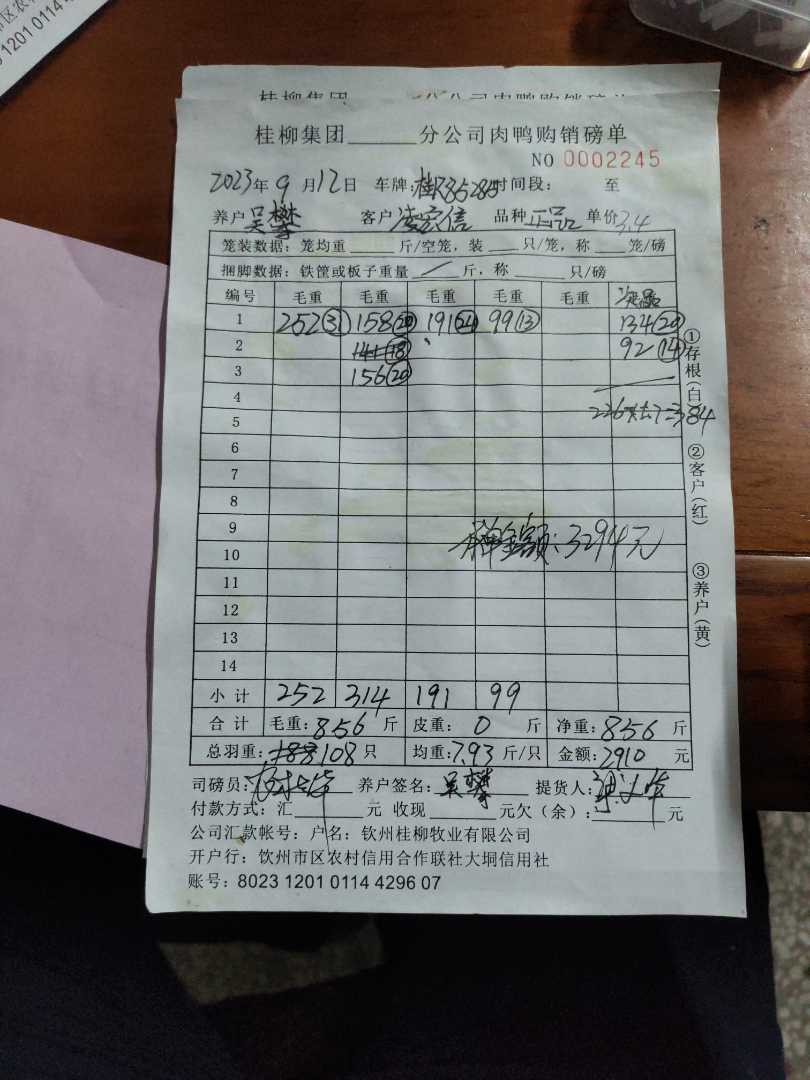 市区农
1201 0114 4
桂柳集团 分公司肉鸭购销磅单
桂柳集团______分公司肉鸭购销磅单
NO 0002245
2023年9月12日 车牌: 85285 时间段: 至
养户 吴攀 客户 凌宏信 品种 正品 单价 3.4
笼装数据: 笼均重____斤/空笼, 装___只/笼, 称___笼/磅
捆脚数据: 铁筐或板子重量 / 斤, 称____只/磅
编号 毛重 毛重 毛重 毛重 毛重 次品
1 252(31) 158(20) 191(24) 99(13) 134(20)
2 141(18) 92(14)
3 156(20)
4
5 226×1.7=384
6
7
8
9 金额: 3294元
10
11
12
13
14
小计 252 314 191 99
合计 毛重: 856 斤 皮重: 0 斤 净重: 856 斤
总羽重: 108 只 均重: 7.93 斤/只 金额: 2910 元
司磅员: 养户签名: 吴攀 提货人:
付款方式: 汇______元 收现______元欠(余):______元
公司汇款帐号: 户名: 钦州桂柳牧业有限公司
开户行: 钦州市区农村信用合作联社大垌信用社
账号: 8023 1201 0114 4296 07
①存根(白) ②客户(红) ③养户(黄)